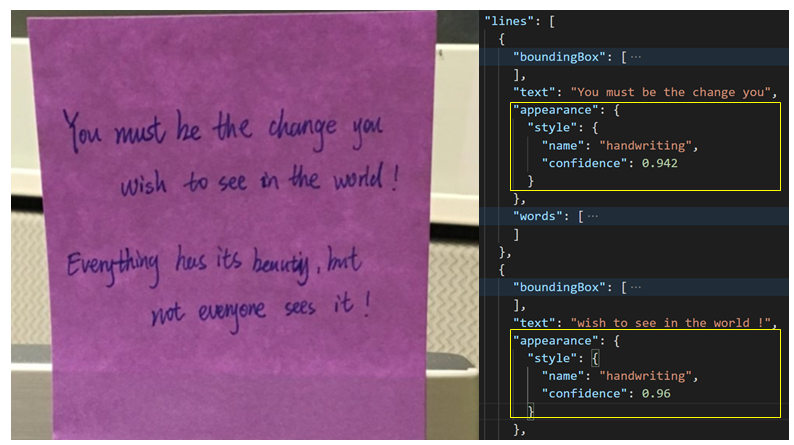 You must be the change you
wish to see in the world !
Everything has its beauty, but
not everyone sees it !
"lines": [
{
"boundingBox": [ ...
],
"text": "You must be the change you",
"appearance": {
"style": {
"name": "handwriting",
"confidence": 0.942
}
},
"words": [ ...
]
},
{
"boundingBox": [ ...
],
"text": "wish to see in the world !",
"appearance": {
"style": {
"name": "handwriting",
"confidence": 0.96
}
},